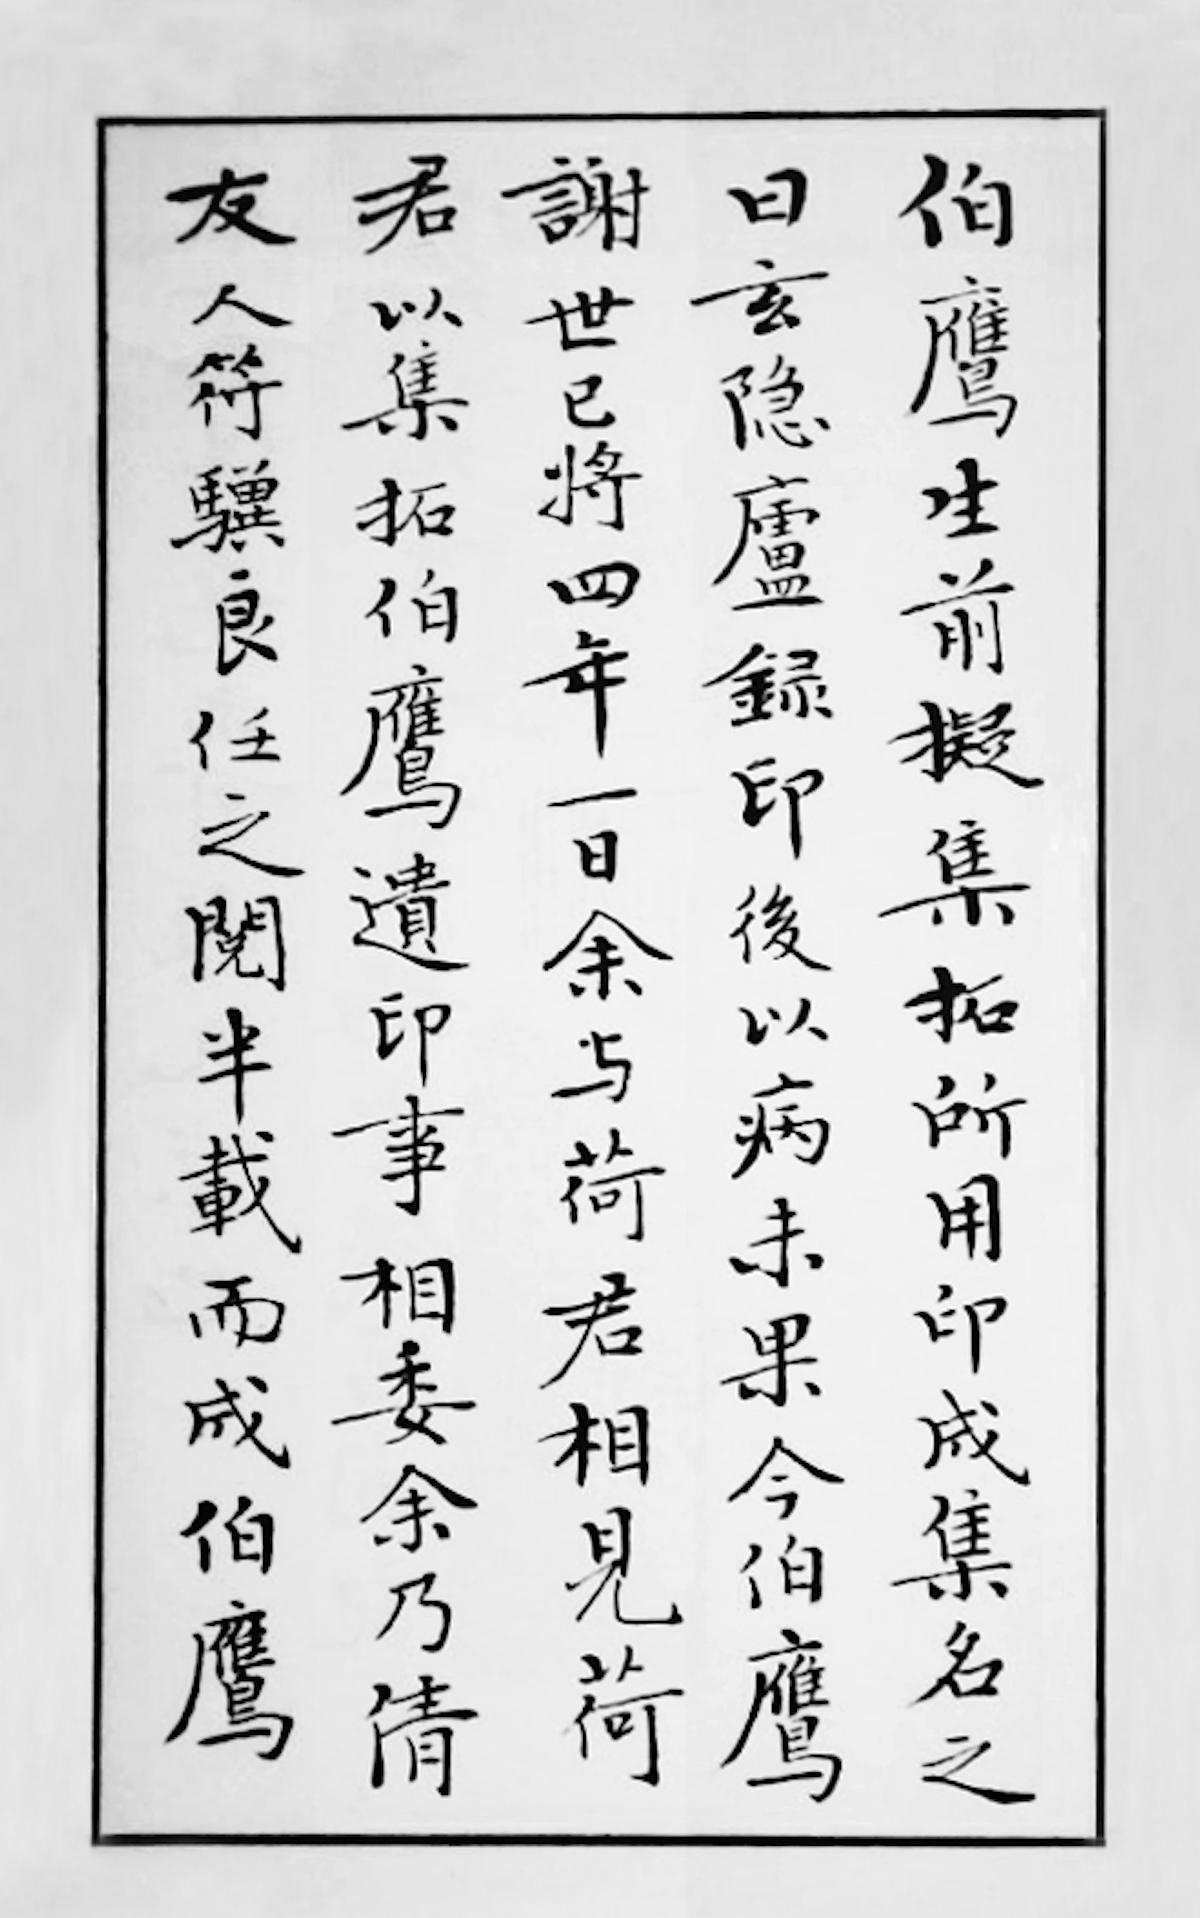 伯鷹生前擬集拓所用印成集名之
曰玄隐廬録印後以病未果今伯鷹
謝世已将四年一日余与荷君相見荷
君以集拓伯鷹遺印事相委余乃倩
友人符驥良任之閲半載而成伯鷹